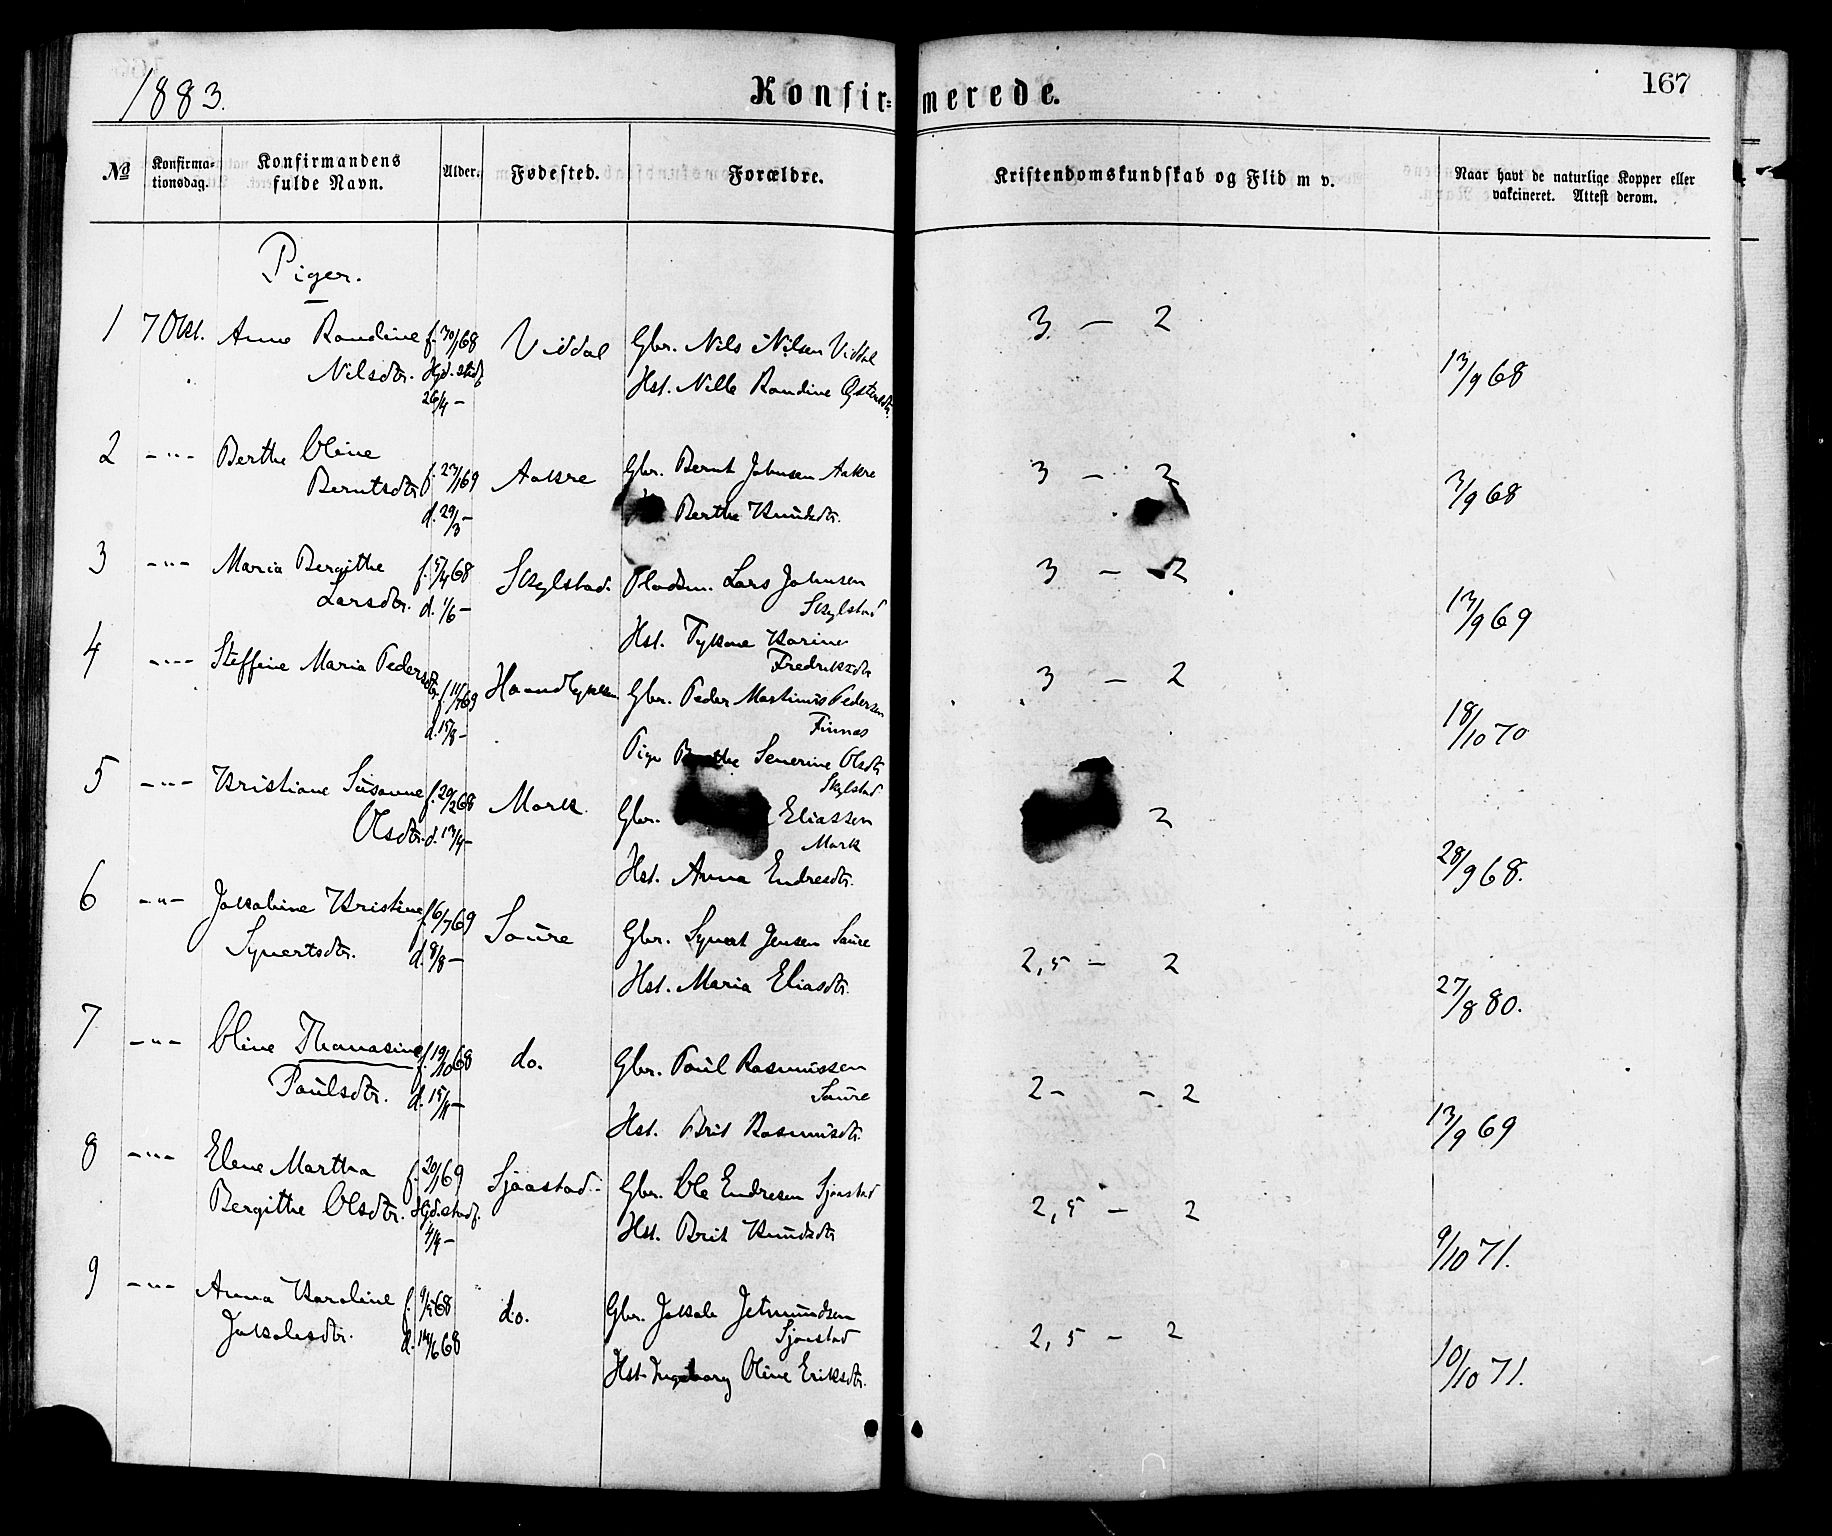 1883.
Konfirmerede.
167
№
Konfirmationsdag.
Konfirmandens fulde Navn.
Alder.
Fødested.
Forældre.
Kristendomskundskab og Flid m v.
Naar havt de naturlige Kopper eller vakcineret. Attest derom.
Piger.
1 7 Okt. Anne Randine f. 30/1 68 Viddal Gbr. Nils Nilsen Viddal 3 — 2
Nilsdtr. Hjd. stadf. Hst. Nille Randine 13/9 68
26/4 -
2 - " - Berthe Oline Aakre Gbr. Bernt Johnsen Aakre 3 — 2
Berntsdtr. f. 23/1 69 Berthe Knudsdtr. 3/9 68
d. 29/3 -
3 - " - Maria Bergithe f. 5/4 68 Skylstad. Pladsm. Lars Johnsen 3 — 2
Larsdtr. d. 1/6 - Skylstad
Hst. Karine 13/9 69
Fredriksdtr
4 - " - Steffine Maria Pedersdtr. f. 11/7 69 Gbr. Peder Martinus Pedersen 3 — 2
d. 15/8 - Finnes
Pige Berthe Severine Olsdtr 18/10 70
Skylstad
5 - " - Kristiane Susanne f. 20/2 68 Mork. Gbr. Eliassen 2
Olsdtr. d. 13/4 - Mork
Hst. Anna Endresdtr. 28/9 68.
6 - " - Jakobine Kristine f. 6/7 69 Saure Gbr. Syvert Jensen Saure 2,5 — 2
Syvertsdtr. d. 8/8 - Hst. Maria Eliasdtr. 27/8 80.
7 - " - Oline Thomasine f. 19/10 68 do. Gbr. Paul Rasmussen 2 - - 2
Paulsdtr. d. 15/11 - Saure
Hst. Brit Rasmusdtr. 13/9 69
8 - " - Elene Martha f. 20/1 69 Sjaastad. Gbr. Ole Endresen Sjaastad 2,5 — 2
Bergithe Olsdtr. Hjd. stadf. Hst. Brit Knudsdtr 9/10 71.
4/4 -
9 - " - Anna Karoline f. 9/5 68 do. Gbr. Jakob Jetmundsen 2,5 — 2
Jakobsdtr. d. 14/6 68 Sjaastad
Hst. Ingeborg Oline Eriksdtr. 10/10 71.